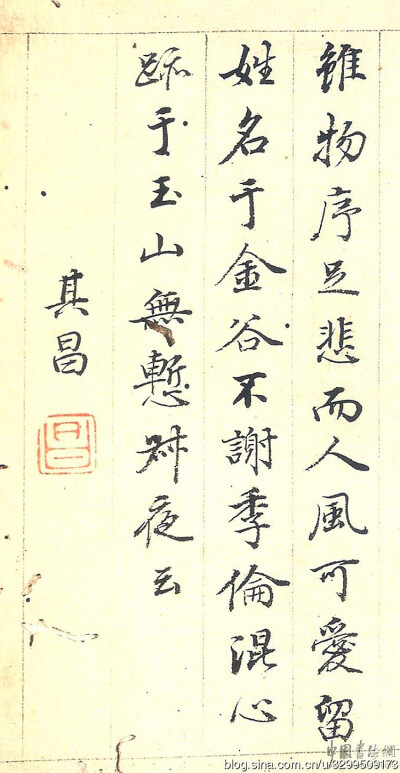 雖物序足悲而人風可愛留
姓名于金谷不謝季倫混心
跡于玉山無慙叔夜云
其昌
中國書法網
blog.sina.com.cn/u/3299509173